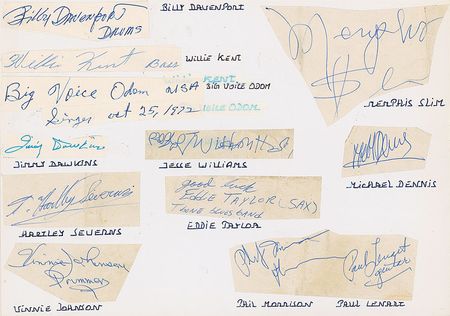 Billy Davenport
DRUMS
BILLY DAVENPORT
Willie Kent Bass
WILLIE KENT
WILLIE KENT
Big Voice Odom USA
BIG VOICE ODOM
Singer Oct 25, 1972
VOICE ODOM
Memphis
Slim
MEMPHIS SLIM
Jimmy Dawkins
JIMMY DAWKINS
JESSE WILLIAMS
MICHAEL DENNIS
T. Hartley Severns
HARTLEY SEVERNS
good luck
EDDIE TAYLOR (SAX)
BLUES BAND
EDDIE TAYLOR
Vinnie Johnson
Drummer
VINNIE JOHNSON
Phil
PHIL MORRISON
Paul Lenart
guitar
PAUL LENART